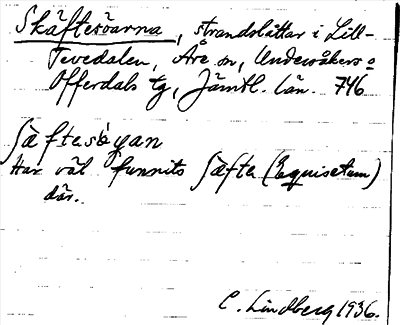 Skäftesöarna, strandslåttar i Lill-
Tevedalen, Åre sn, Undersåkers o
Offerdals tg, Jämtl. län. 746
ʃæ̀ftesǿyan
Har väl funnits ʃæfta (Equisetum)
där.
C. Lindberg 1936.